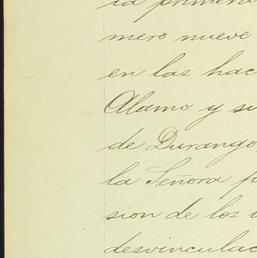 la primera
mero nueve
en las hac
Alamo y su
de Durango
la Señora p
sion de los
desvinculac